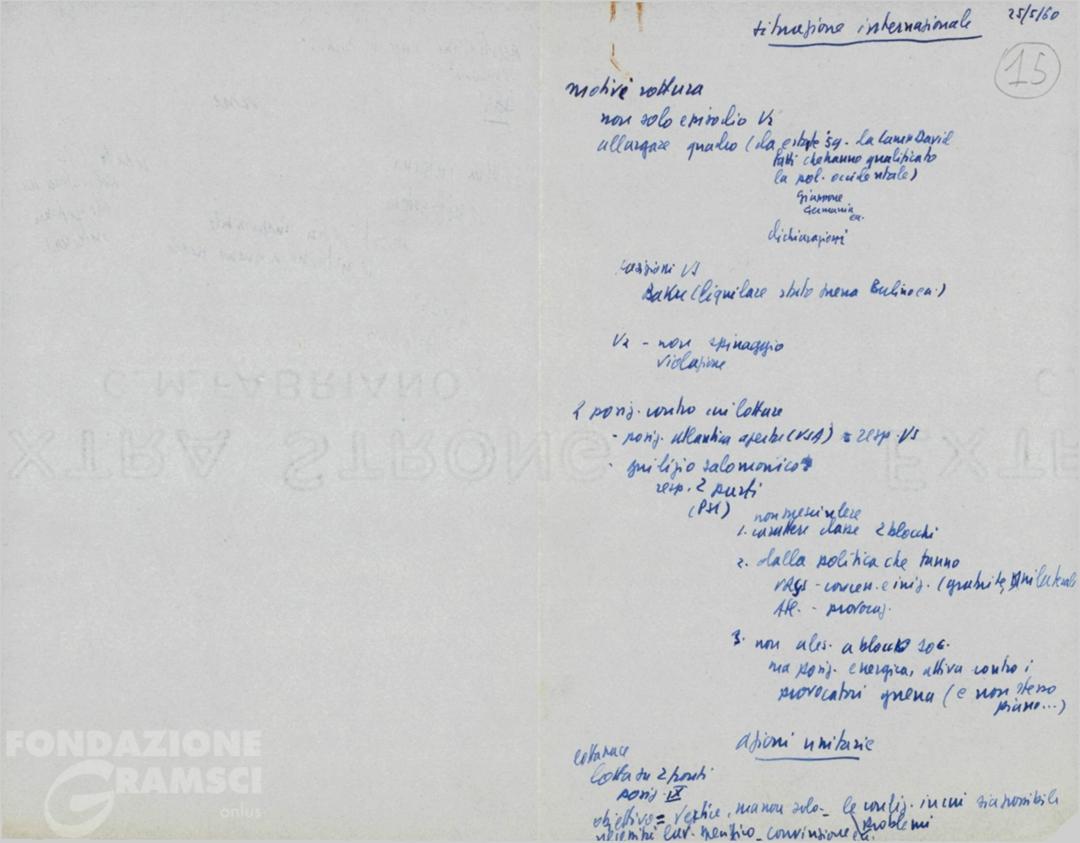 situazione internazionale
25/5/60
15
motivi rottura
non solo episodio U2
allargare quadro (da estate '59 - da Camp David
fatti che hanno qualificato
la pol. occidentale)
Giappone
Germania
ecc.
dichiarazioni
posizioni US
Baku (liquidare stato guerra Berlino ecc.)
U2 - non spinaggio
violazione
2 posiz. contro cui lottare
- posiz. atlantica aperta (USA) = resp. US
- giudizio salomonico
resp. 2 parti
(PSI)
non prescindere
1. carattere classe 2 blocchi
2. dalla politica che fanno
URSS - conces. e iniz. (gratuite, unilaterale
Atl. - provocaz.
3. non ades. a blocco soc.
ma posiz. energica, attiva contro i
provocatori guerra (e non stesso
piano...)
azioni unitarie
lotta pace
lotta su 2 fronti
posiz. IX
obiettivo = vertice, ma non solo - le condiz. in cui sia possibile
problemi
convinzione ecc.
FONDAZIONE
GRAMSCI
onlus
C. M. FABRIANO
XTRA STRONG
EXTR
C.